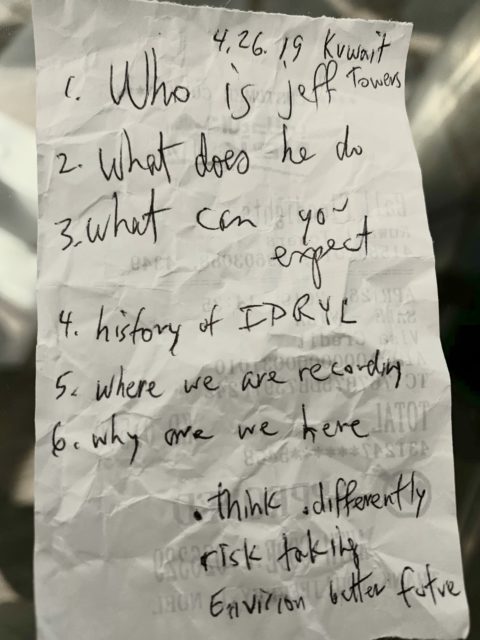 4.26.19 Kuwait
Towers
1. Who is jeff
2. What does he do
3. what can you
expect
4. history of IDRYL
5. where we are recording
6. why are we here
. think . differently
risk taking
Envision better future